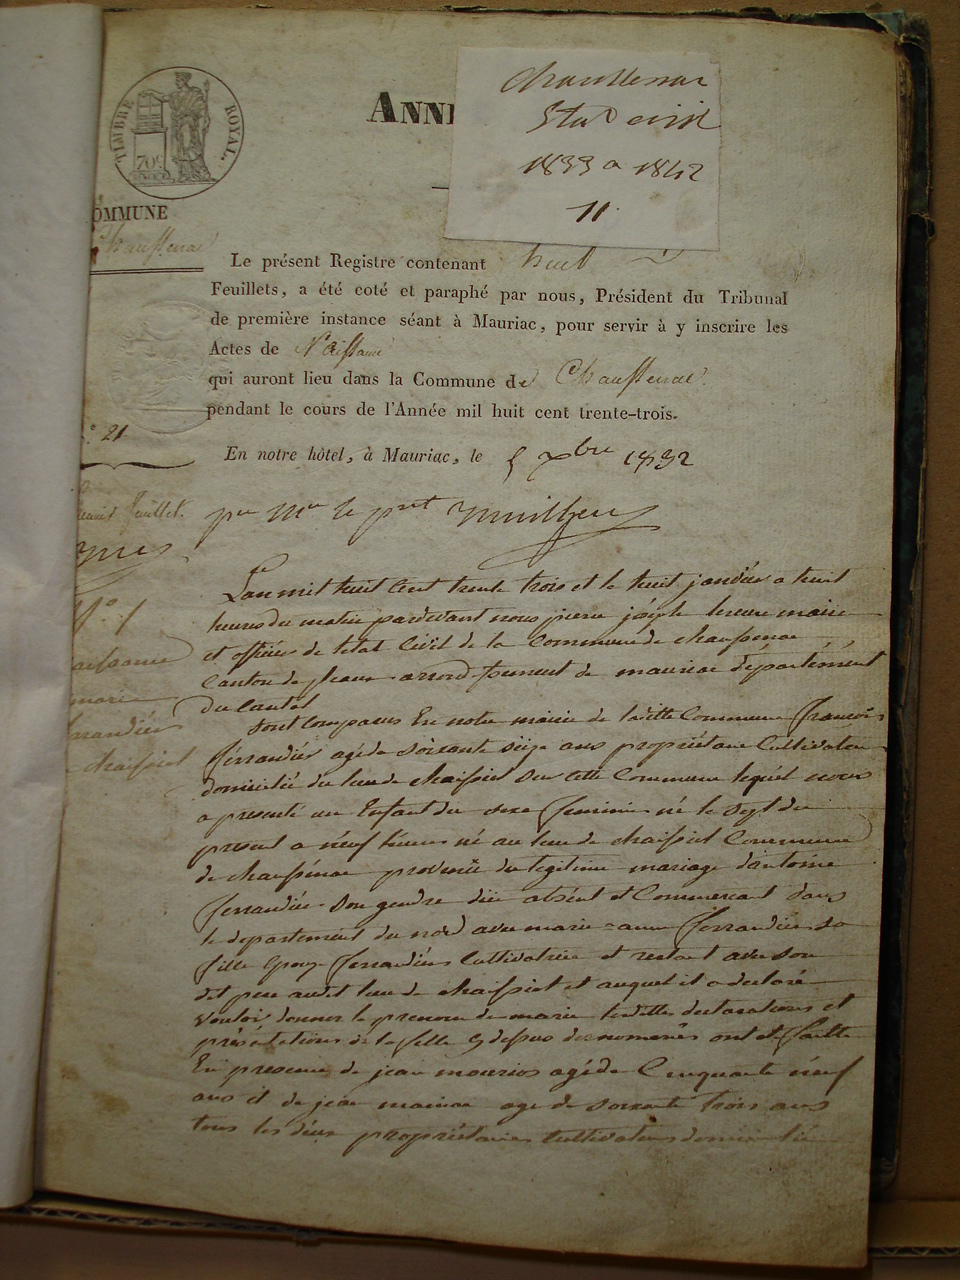 TIMBRE ROYAL
ANN
Etat civil
1833 a 1842
11.
COMMUNE
Chaussenac
Le présent Registre contenant huit
Feuillets, a été coté et paraphé par nous, Président du Tribunal
de première instance séant à Mauriac, pour servir à y inscrire les
Actes de Naissance
qui auront lieu dans la Commune de Chaussenac
pendant le cours de l'Année mil huit cent trente-trois.
21
En notre hôtel, à Mauriac, le 5 xbre 1832
feuillet.
pr Mr le prt
N° 1
Lan mil huit cent trente trois et le huit janvier a huit
heures du matin pardevant nous pierre joseph maire
et officier de letat civil de la Commune de chaussenac
Canton de pleaux arrondissement de mauriac département
du Cantal
Sont Comparus En notre mairie de ladite Commune francois
ferrandier agé de soixante seize ans propriétaire Cultivateur
domicilié du lieu de chaissiol sur cette Commune lequel nous
a presenté un Enfant du sexe feminin né le sept du
present a neuf heures né au lieu de chaissiol Commune
de chaussenac provenu du legitime mariage dantoine
ferrandier son gendre absent et Commercant dans
le departement du nord avec marie anne ferrandier sa
fille Epouse ferrandier Cultivatrice et restant avec son
dit pere audit lieu de chaissiol et auquel il a declaré
vouloir donner le prenom de marie lesdittes declarations et
présentations de la fille cy dessus denommés ont eté faitte
En presence de jean mourios agé de Cinquante neuf
ans et de jean age de soixante trois ans
tous les deux propriétaires Cultivateurs domicilié
naissance
marie
ferrandier
chaissiol